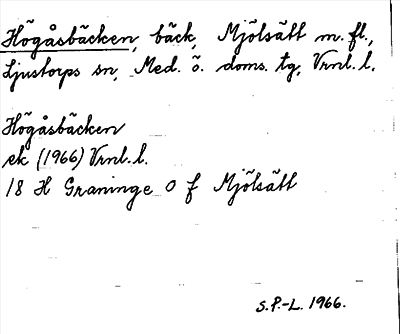 Högåsbäcken, bäck, Mjölsätt m. fl.,
Ljustorps sn, Med. ö. doms. tg, Vrnl. l.
Högåsbäcken
ek (1966) Vrnl. l.
18 H Graninge O f Mjölsätt
S.P.-L. 1966.